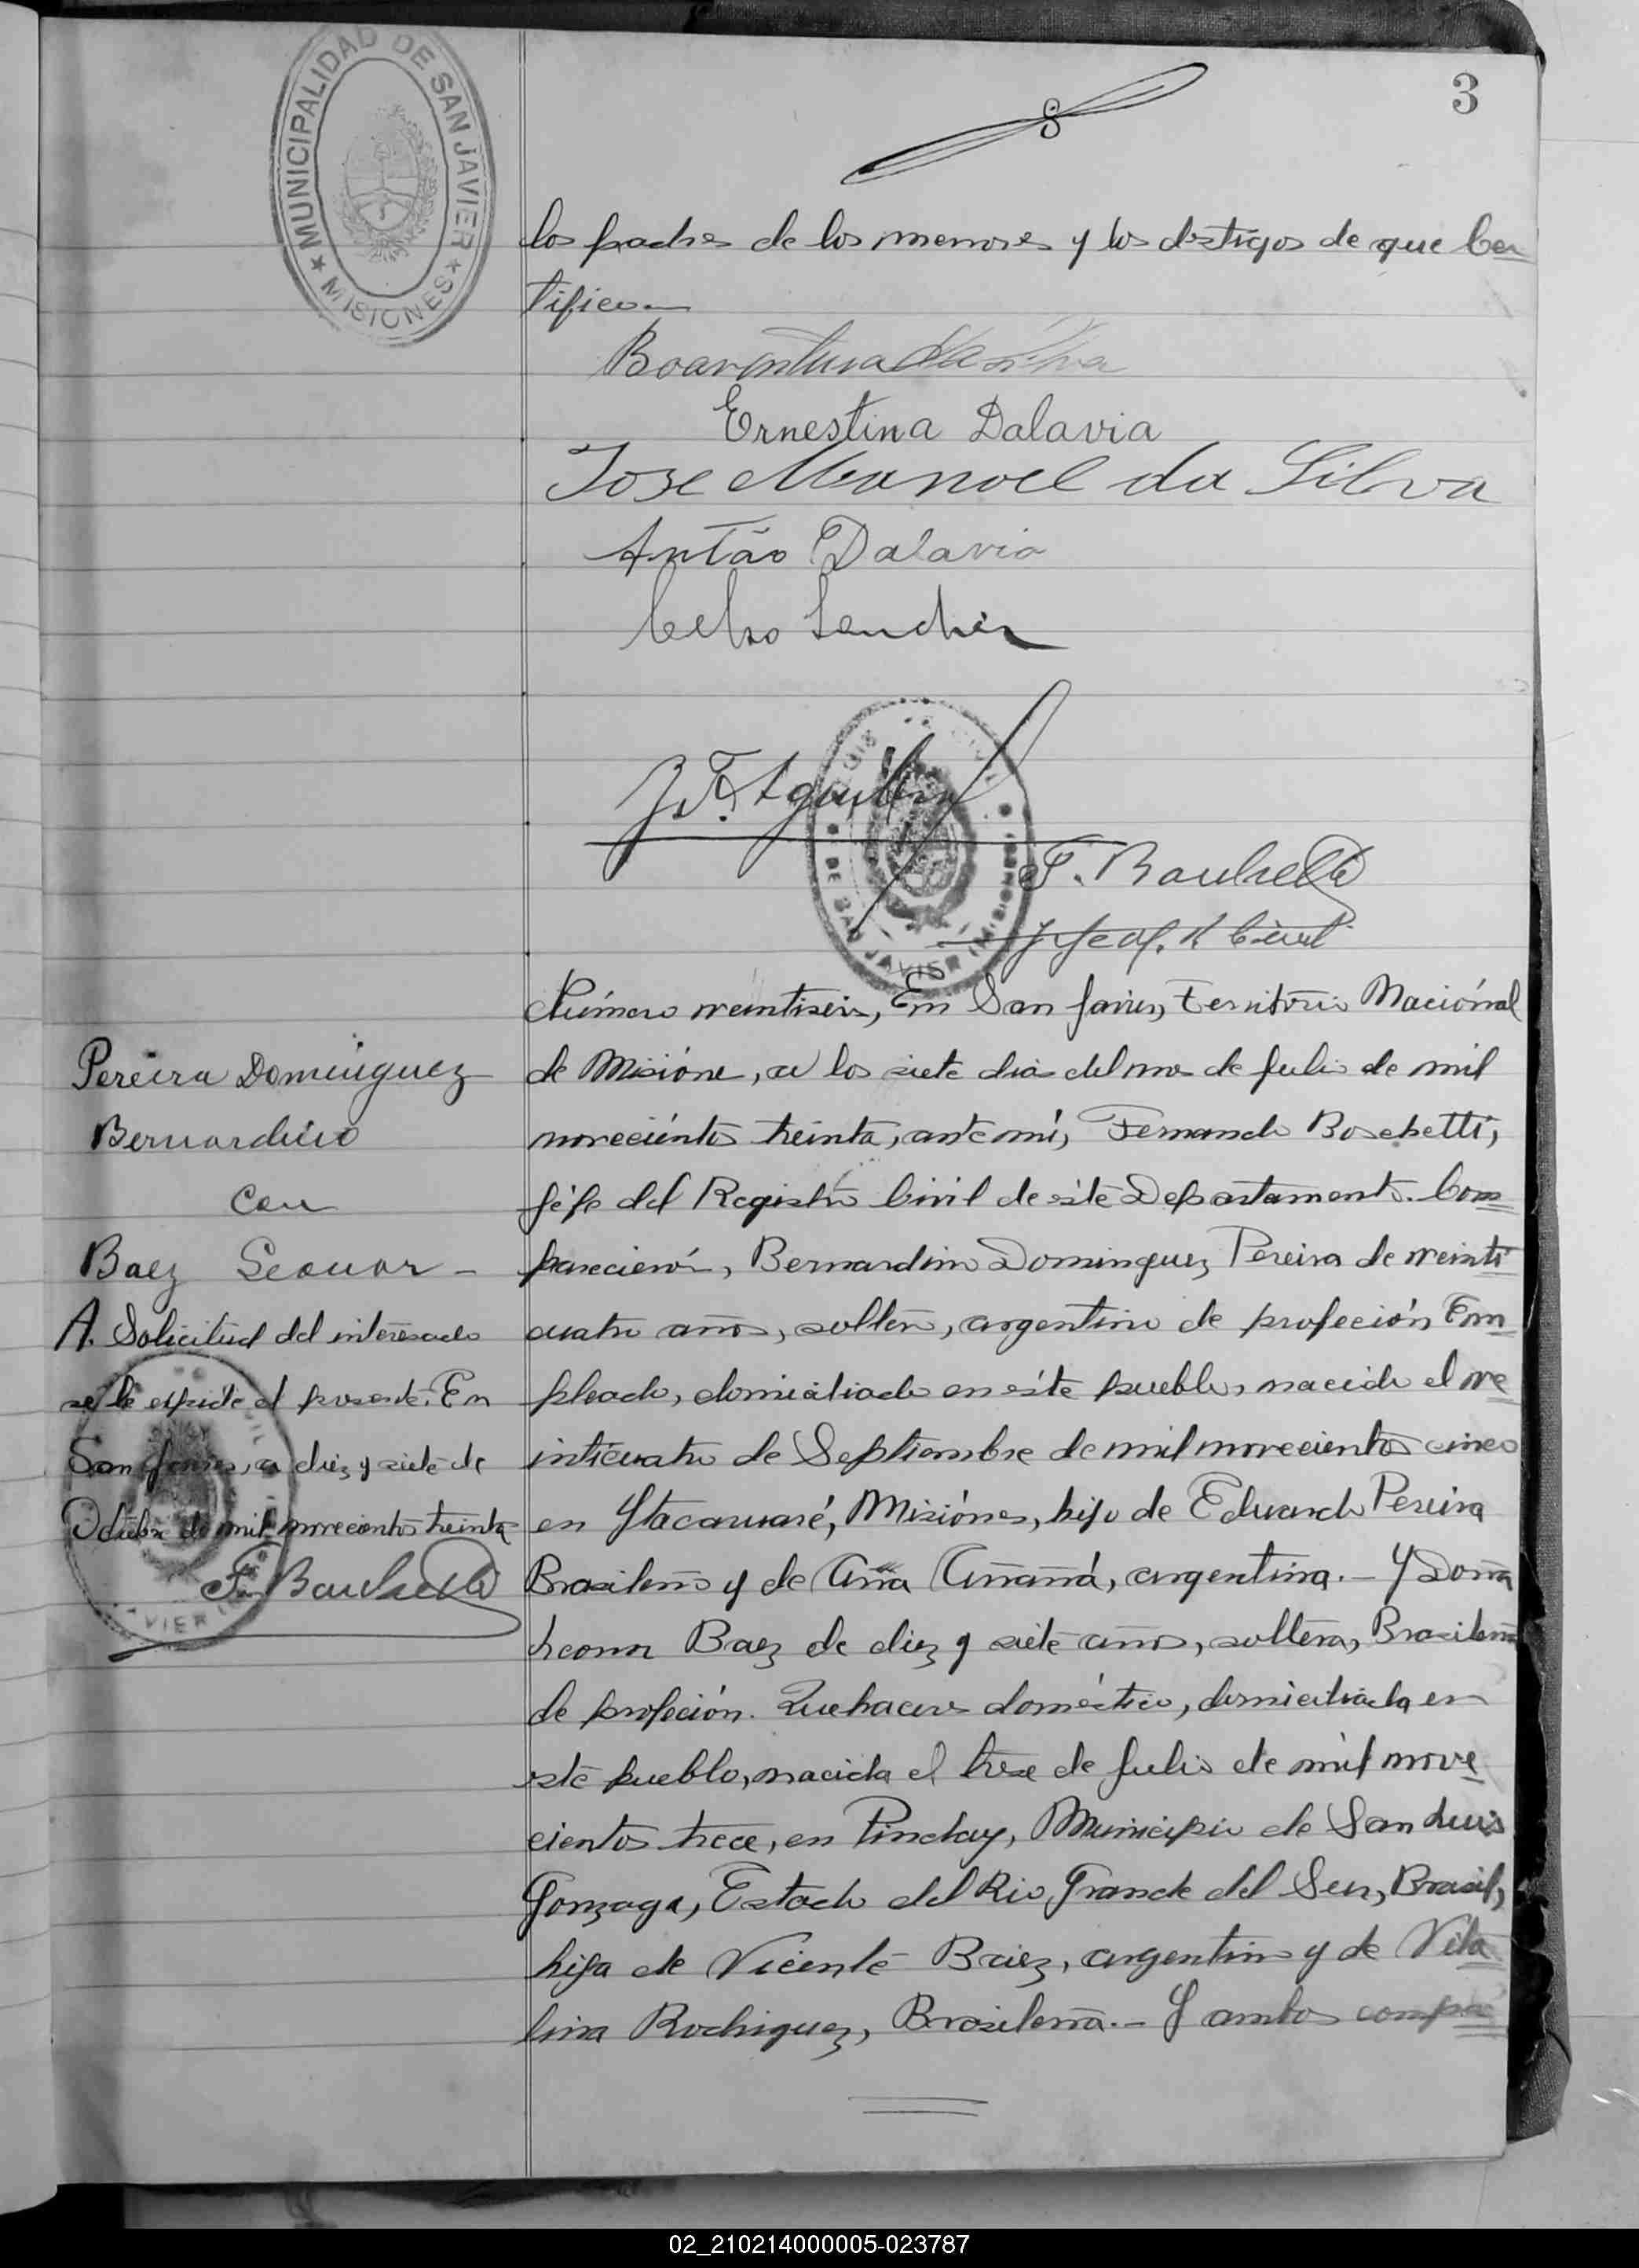 3
MUNICIPALIDAD DE SAN JAVIER
★ MISIONES ★
los padres de los menores y los testigos de que Cer
tifico.—
Boaventura da Silva
Ernestina Dalavia
Jose Manoel da Silva
Antão Dalavia
Celso Sanchez
F. Boschetti
Jefe of. R Civil
DE SAN JAVIER (MISIONES)
Número veintiseis, En San Javier, Territorio Nacional
de Misióne, a los siete dias del mes de Julio de mil
noveciéntos treinta, ante mí, Fernando Boschetti,
Jéfe del Registro Civil de éste Departamento. Com
parecierón, Bernardino Dominguez Pereira de veinti
cuatro años, soltero, argentino de profeción Em
pleado, domiciliado en éste pueblo, nacido el ve
inticuatro de Septiembre de mil novecientos cinco
en Ytacaruaré, Misiónes, hijo de Eduardo Pereira
Brasileño y de Ana Añañá, argentina.— Y Doña
Leonor Baez de diez y siete años, soltera, Brasileña
de profeción. Quehaceres doméstico, domiciliada en
éste pueblo, nacida el trece de Julio de mil nove
cientos trece, en Pinday, Municipio de San Luis
Gonzaga, Estado del Rio Grande del Sur, Brasil,
hija de Vicente Báez, argentino y de Vita
lina Rodriguez, Brasileña.— Y ambos compa
Pereira Dominguez
Bernardino
con
Baez Leonor —
A. Solicitud del interesado
se le expide el presente. En
San Javier, a diez y siete de
Octubre de mil novecientos treinta
F. Boschetti
02_210214000005-023787